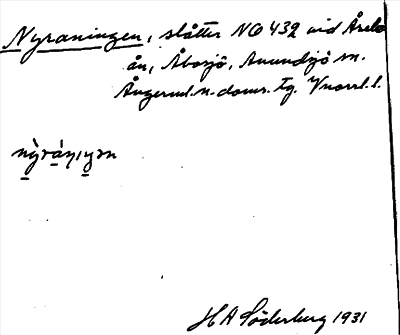 Nyraningen, slåtter NO 439 vid Årelе
ån, Åbosjö, Anundsjö sn.
Ångerml. n. doms. tg. Vnorrl. l.
nỳrán̨ıŋən
H A Söderberg 1931